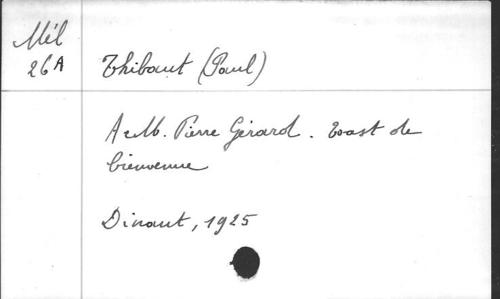 Mél
26A
Thibaut (Paul)
A M. Pierre Gérard. Toast de
bienvenue
Dinant, 1925